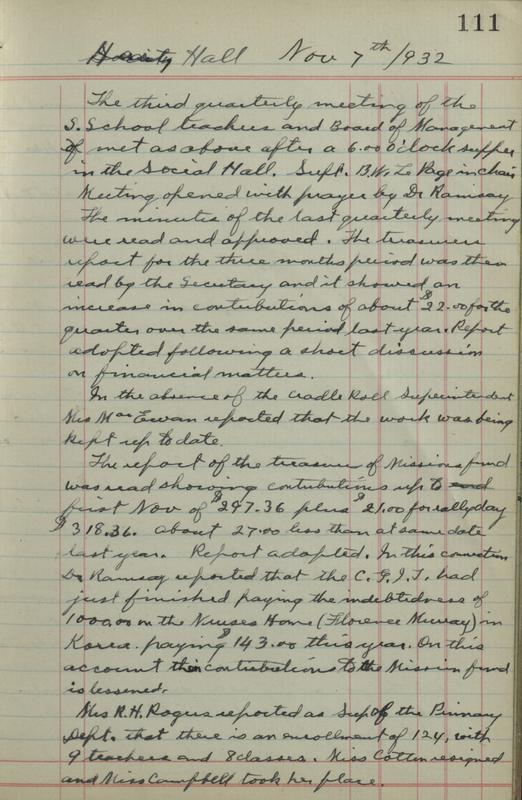 111
Hall Nov 7th /932
The third quarterly meeting of the
S. School teachers and Board of Management
of met as above after a 6.00 o'clock supper
in the Social Hall. Supt. B. W. Le Page in chair
Meeting opened with prayer by Dr Ramsay
The minutes of the last quarterly meeting
were read and approved. The treasurers
report for the three months period was then
read by the Secretary and it showed an
increase in contributions of about $22.00 for the
quarter over the same period last year. Report
adopted following a short discussion
on financial matters.
In the absence of the Cradle Roll Superintendent
Mrs MacEwan reported that the work was being
kept up to date.
The report of the treasurer of Missions fund
was read showing contributions up to end
first Nov of $297.36 plus $21.00 for rally day
$318.36. about 27.00 less than at same date
last year. Report adopted. In this connection
Dr Ramsay reported that the C.G.I.T. had
just finished paying the indebtedness of
1000.00 on the Nurses Home (Florence Murray) in
Korea. paying $143.00 this year. On this
account their contributions to the Mission fund
is lessened.
Mrs R.H. Rogers reported as Sup of the Primary
Dept. that there is an enrollment of 124, with
9 teachers and 8 classes. Miss Cotton resigned
and Miss Campbell took her place.